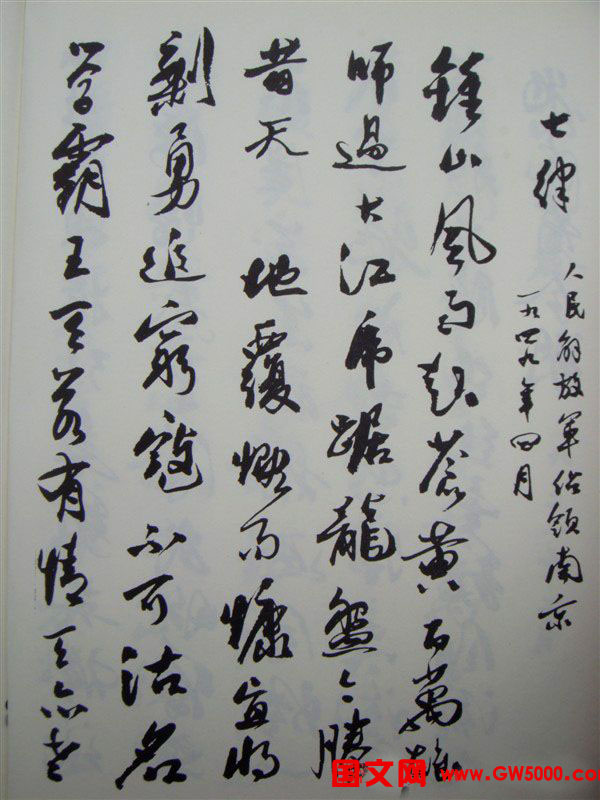 七律
人民解放军佔领南京
一九四九年四月
鍾山風雨起蒼黄百萬雄
師過大江虎踞龍盤今勝
昔天 地覆慨而慷宜将
剩勇追窮寇不可沽名
学霸王天若有情天亦老
国文网 www.GW5000.com